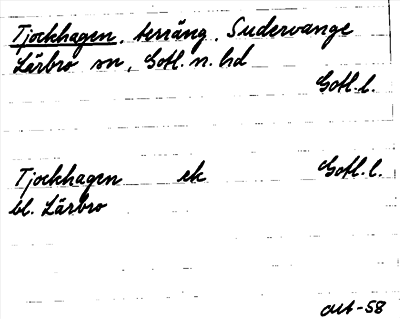 Tjockhagen, terräng, Sudervange
Lärbro sn, Gotl. n. hd
Gotl. l.
Tjockhagen ek Gotl. l.
bl. Lärbro
-58